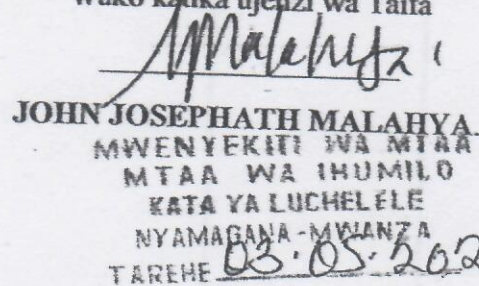 wako katika ujenzi wa Taifa
JOHN JOSEPHATH MALAHYA
MWENYEKITI WA MTAA
MTAA WA IHUMILO
KATA YA LUCHELELE
NYAMAGANA - MWANZA
TAREHE 03.05.202